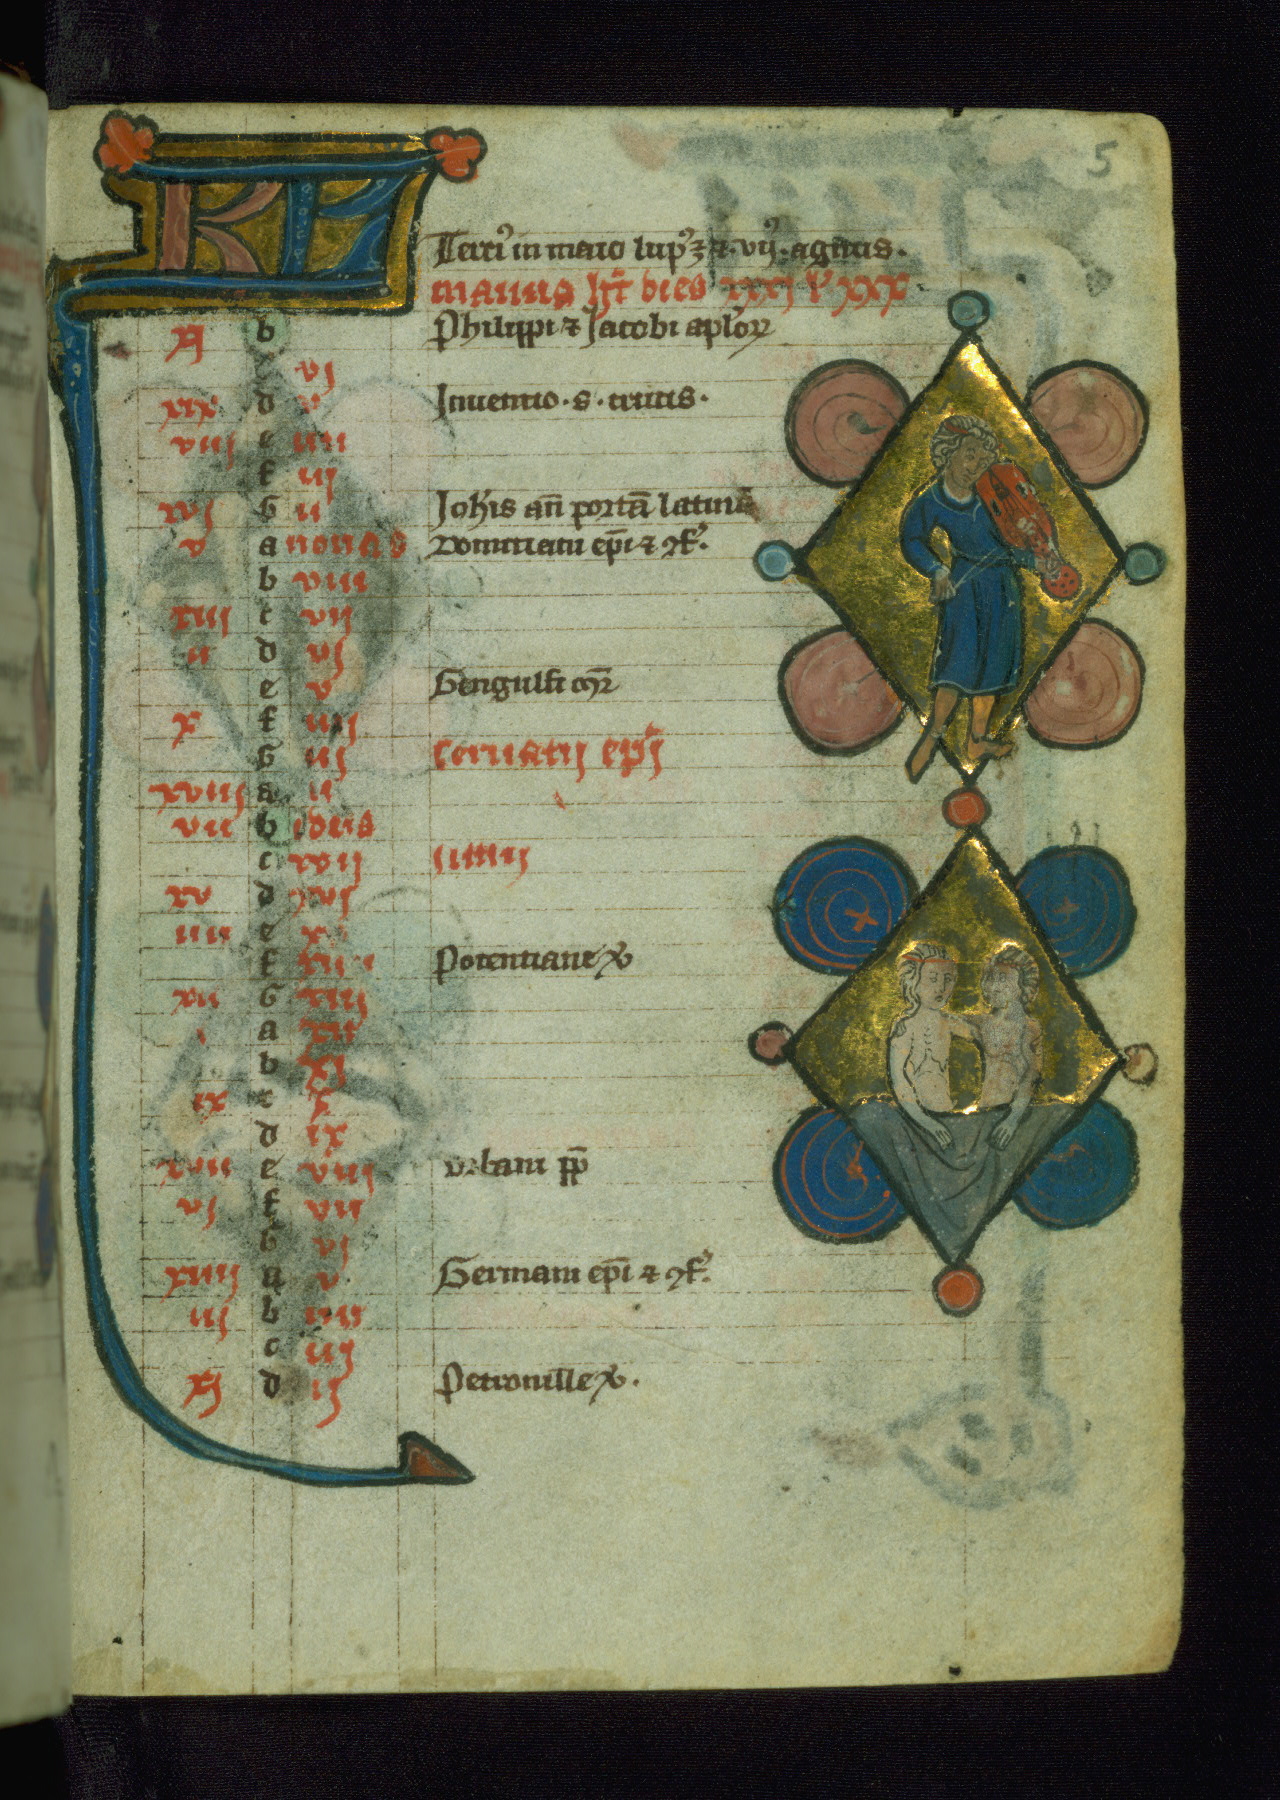 5
KL
Terci' in maio lup'z & vij agnus.
maius h't dies xxxj l' xxx
xj b Philippi & Jacobi ap'lor
vj
xix d v Inuentio · s · crucis ·
viij e iiij
f iij
xvj G ij Joh'is an̄ portā latinā
v a nonas Domitiani ep̄i & 9f'.
b viij
xiij c vij
ij d vj
e v Gengulfi m̄r
x f iiij
G iij seruatij ep̄i
xviij a ij
vij b idus
c xvij
xv d xvj
iiij e
f Potentiane v'
xij G xiiij
a xij
b xj
ix c x
d ix
xvij e viij vrbani p̄p
vj f vij
G vj
xiiij a v Germani ep̄i & 9f'.
iij b iiij
c iij
xj d ij Petronille v'.